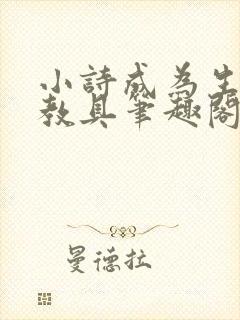 小詩成為生
教具筆趣閣
曼德拉